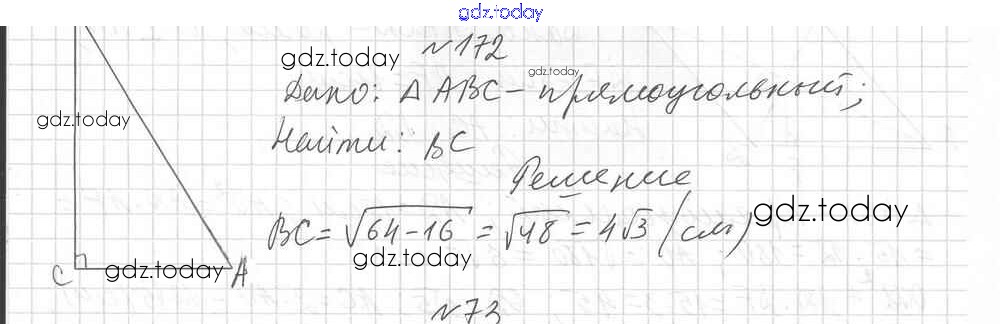 gdz.today
№172
gdz.today
Дано: Δ ABC - прямоугольный;
gdz.today
gdz.today
Найти: BC
Решение
BC = √64-16 = √48 = 4√3 (см)
gdz.today
gdz.today
C
gdz.today
A
№73